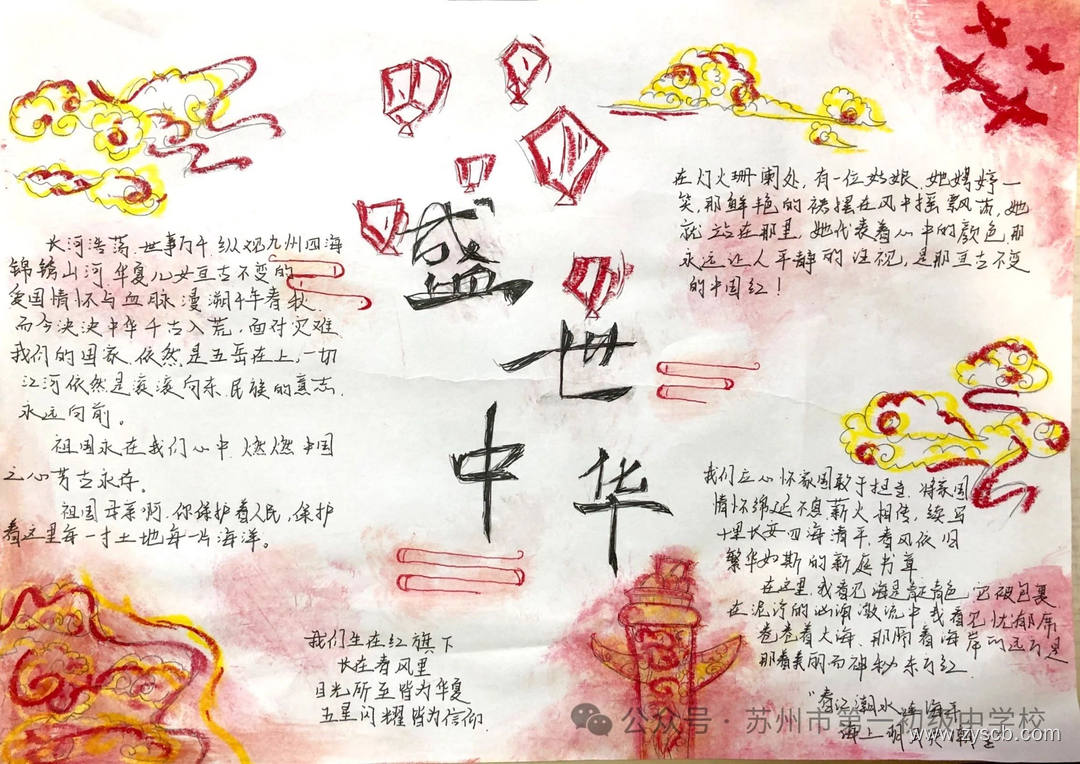 盛世
中华
长河浩荡,世事万千,纵观九州四海
锦绣山河,华夏儿女亘古不变的
爱国情怀与血脉漫溯千年春秋
而今泱泱中华千古入荒,面对灾难
我们的国家,依然是五岳在上,一切
江河依然是滚滚向东,民族的意志,
永远向前。
祖国永在我们心中,燃燃中国
之心万古永存。
祖国母亲啊,你保护着人民,保护
着这里每一寸土地每一片海洋。
在灯火珊阑处,有一位姑娘,她娉婷一
笑,那鲜艳的裙摆在风中摇飘荡,她
就站在那里,她代表着心中的颜色,那
永远让人平静的注视,是那亘古不变
的中国红!
我们应心怀家国敢于担当,将家国
情怀绵延不息薪火相传,续写
十里长安四海清平,春风依旧
繁华如斯的新庭书章
在这里,我看见海是靛青色,它被包裹
在泥泞的汹涌激流中,我看见忧郁
卷卷着大海,那闭着海岸的远方是
那着美丽而神秘东方红
"春江潮水连海平
海上明月共潮生
我们生在红旗下
长在春风里
目光所至皆为华夏
五星闪耀皆为信仰
公众号·苏州市第一初级中学校
www.zyscb.com